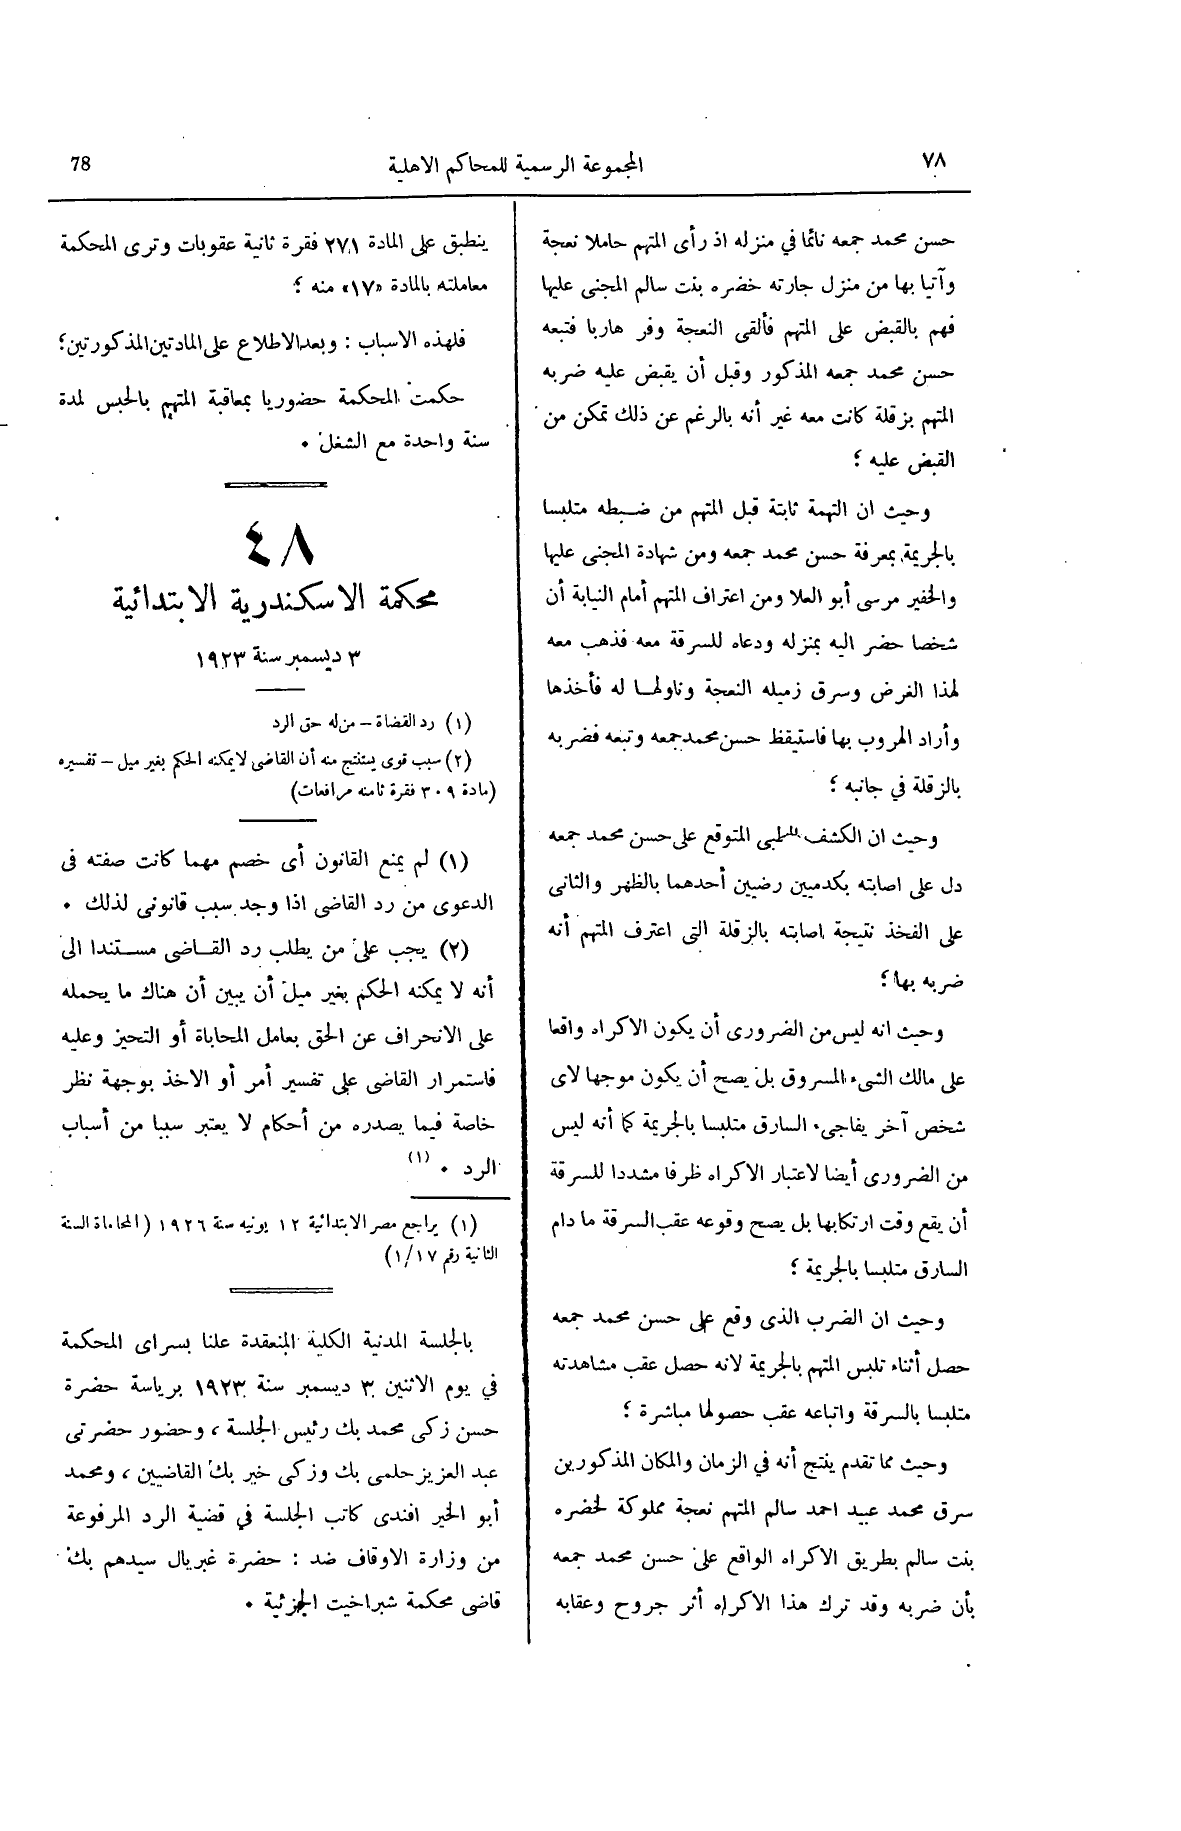 ٧٨
المجموعة الرسمية للمحاكم الاهلية
78
حسن محمد جمعه نائما في منزله اذ رأى المتهم حاملا نعجة
وآتيا بها من منزل جارته خضره بنت سالم المجنى عليها
فهم بالقبض على المتهم فألقى النعجة وفر هاربا فتبعه
حسن محمد جمعه المذكور وقبل أن يقبض عليه ضربه
المتهم بزقلة كانت معه غير أنه بالرغم عن ذلك تمكن من
القبض عليه ؛
وحيث ان التهمة ثابتة قبل المتهم من ضبطه متلبسا
بالجريمة بمعرفة حسن محمد جمعه ومن شهادة المجنى عليها
والخفير مرسى أبو العلا ومن اعتراف المتهم أمام النيابة أن
شخصا حضر اليه بمنزله ودعاه للسرقة معه فذهب معه
لهذا الغرض وسرق زميله النعجة وناولها له فأخذها
وأراد الهروب بها فاستيقظ حسن محمد جمعه وتبعه فضربه
بالزقلة في جانبه ؛
وحيث ان الكشف الطبى المتوقع على حسن محمد جمعه
دل على اصابته بكدميين رضيين أحدهما بالظهر والثانى
على الفخذ نتيجة اصابته بالزقلة التى اعترف المتهم أنه
ضربه بها ؛
وحيث انه ليس من الضرورى أن يكون الاكراه واقعا
على مالك الشىء المسروق بل يصح أن يكون موجها لاى
شخص آخر يفاجىء السارق متلبسا بالجريمة كما أنه ليس
من الضرورى أيضا لاعتبار الاكراه ظرفا مشددا للسرقة
أن يقع وقت ارتكابها بل يصح وقوعه عقب السرقة ما دام
السارق متلبسا بالجريمة ؛
وحيث ان الضرب الذى وقع على حسن محمد جمعه
حصل أثناء تلبس المتهم بالجريمة لانه حصل عقب مشاهدته
متلبسا بالسرقة واتباعه عقب حصولها مباشرة ؛
وحيث مما تقدم ينتج أنه في الزمان والمكان المذكورين
سرق محمد عبيد احمد سالم المتهم نعجة مملوكة لخضره
بنت سالم بطريق الاكراه الواقع على حسن محمد جمعه
بأن ضربه وقد ترك هذا الاكراه أثر جروح وعقابه
ينطبق على المادة ٢٧١ فقرة ثانية عقوبات وترى المحكمة
معاملته بالمادة «١٧» منه ؛
فلهذه الاسباب : وبعد الاطلاع على المادتين المذكورتين؛
حكمت المحكمة حضوريا بمعاقبة المتهم بالحبس لمدة
سنة واحدة مع الشغل ٠
٤٨
محكمة الاسكندرية الابتدائية
٣ ديسمبر سنة ١٩٢٣
(١) رد القضاة – من له حق الرد
(٢) سبب قوى يستنتج منه أن القاضى لا يمكنه الحكم بغير ميل – تفسيره
(مادة ٣٠٩ فقرة ثامنه مرافعات)
(١) لم يمنع القانون أى خصم مهما كانت صفته فى
الدعوى من رد القاضى اذا وجد سبب قانونى لذلك ٠
(٢) يجب على من يطلب رد القاضى مستندا الى
أنه لا يمكنه الحكم بغير ميل أن يبين أن هناك ما يحمله
على الانحراف عن الحق بعامل المحاباة أو التحيز وعليه
فاستمرار القاضى على تفسير أمر أو الاخذ بوجهة نظر
خاصة فيما يصدره من أحكام لا يعتبر سببا من أسباب
الرد ٠ (١)
(١) يراجع مصر الابتدائية ١٢ يونيه سنة ١٩٢٦ (المحاماة السنة
الثانية رقم ١/١٧)
بالجلسة المدنية الكلية المنعقدة علنا بسراى المحكمة
في يوم الاثنين ٣ ديسمبر سنة ١٩٢٣ برياسة حضرة
حسن زكى محمد بك رئيس الجلسة ، وحضور حضرتى
عبد العزيز حلمى بك وزكى خير بك القاضيين ، ومحمد
أبو الخير افندى كاتب الجلسة في قضية الرد المرفوعة
من وزارة الاوقاف ضد : حضرة غبريال سيدهم بك
قاضى محكمة شبراخيت الجزئية ٠